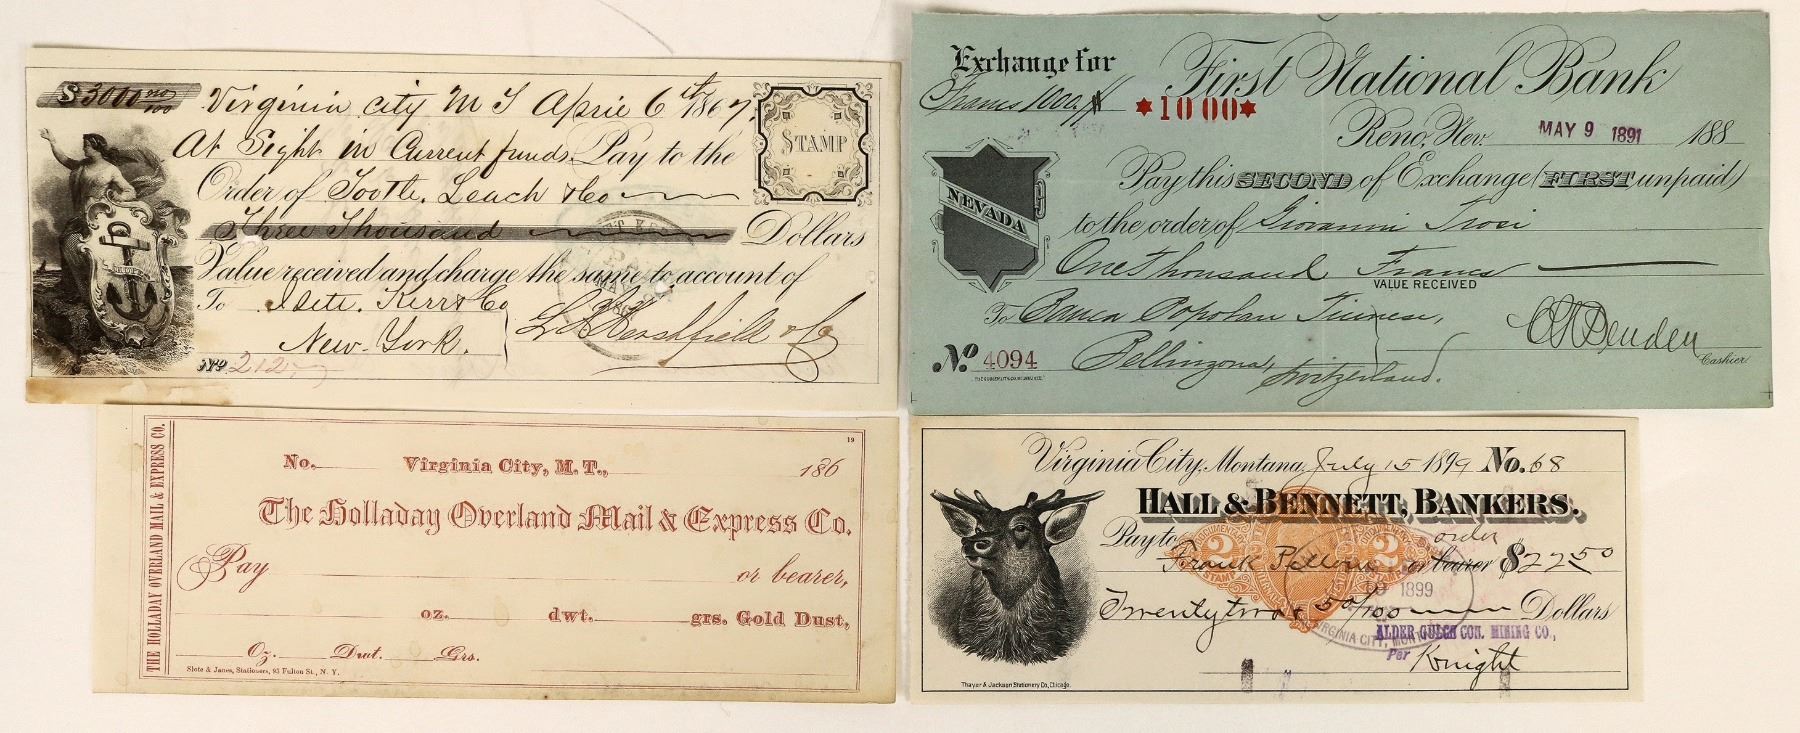 $3000 00/100
Virginia City M T April 6th 1867.
At Sight in Current funds. Pay to the
STAMP
Order of Tootle, Leach & Co
Three Thousand Dollars
Value received and charge the same to account of
To Kerr & Co
New-York.
L. H. Hershfield & Co
No 212
Exchange for
First National Bank
Francs 1000.
*1000*
Reno, Nev. MAY 9 1891 188
NEVADA
Pay this SECOND of Exchange (FIRST unpaid)
to the order of Giovanni Trosi
One Thousand Francs
VALUE RECEIVED
To Banca Popolare Ticinese,
Bellinzona, Switzerland.
Cashier
No. 4094
THE HOLLADAY OVERLAND MAIL & EXPRESS CO.
19
No. Virginia City, M. T., 186
The Holladay Overland Mail & Express Co.
Pay or bearer,
oz. dwt. grs. Gold Dust,
Oz. Dwt. Grs.
Slote & Janes, Stationers, 93 Fulton St., N. Y.
Virginia City, Montana, July 15 1899 No. 68
HALL & BENNETT, BANKERS.
order
Pay to Frank or bearer $22 50
2 2
1899
Twenty two & 50/100 Dollars
VIRGINIA CITY,
ALDER GULCH CON. MINING CO.,
Per Knight
Thayer & Jackson Stationery Co, Chicago.